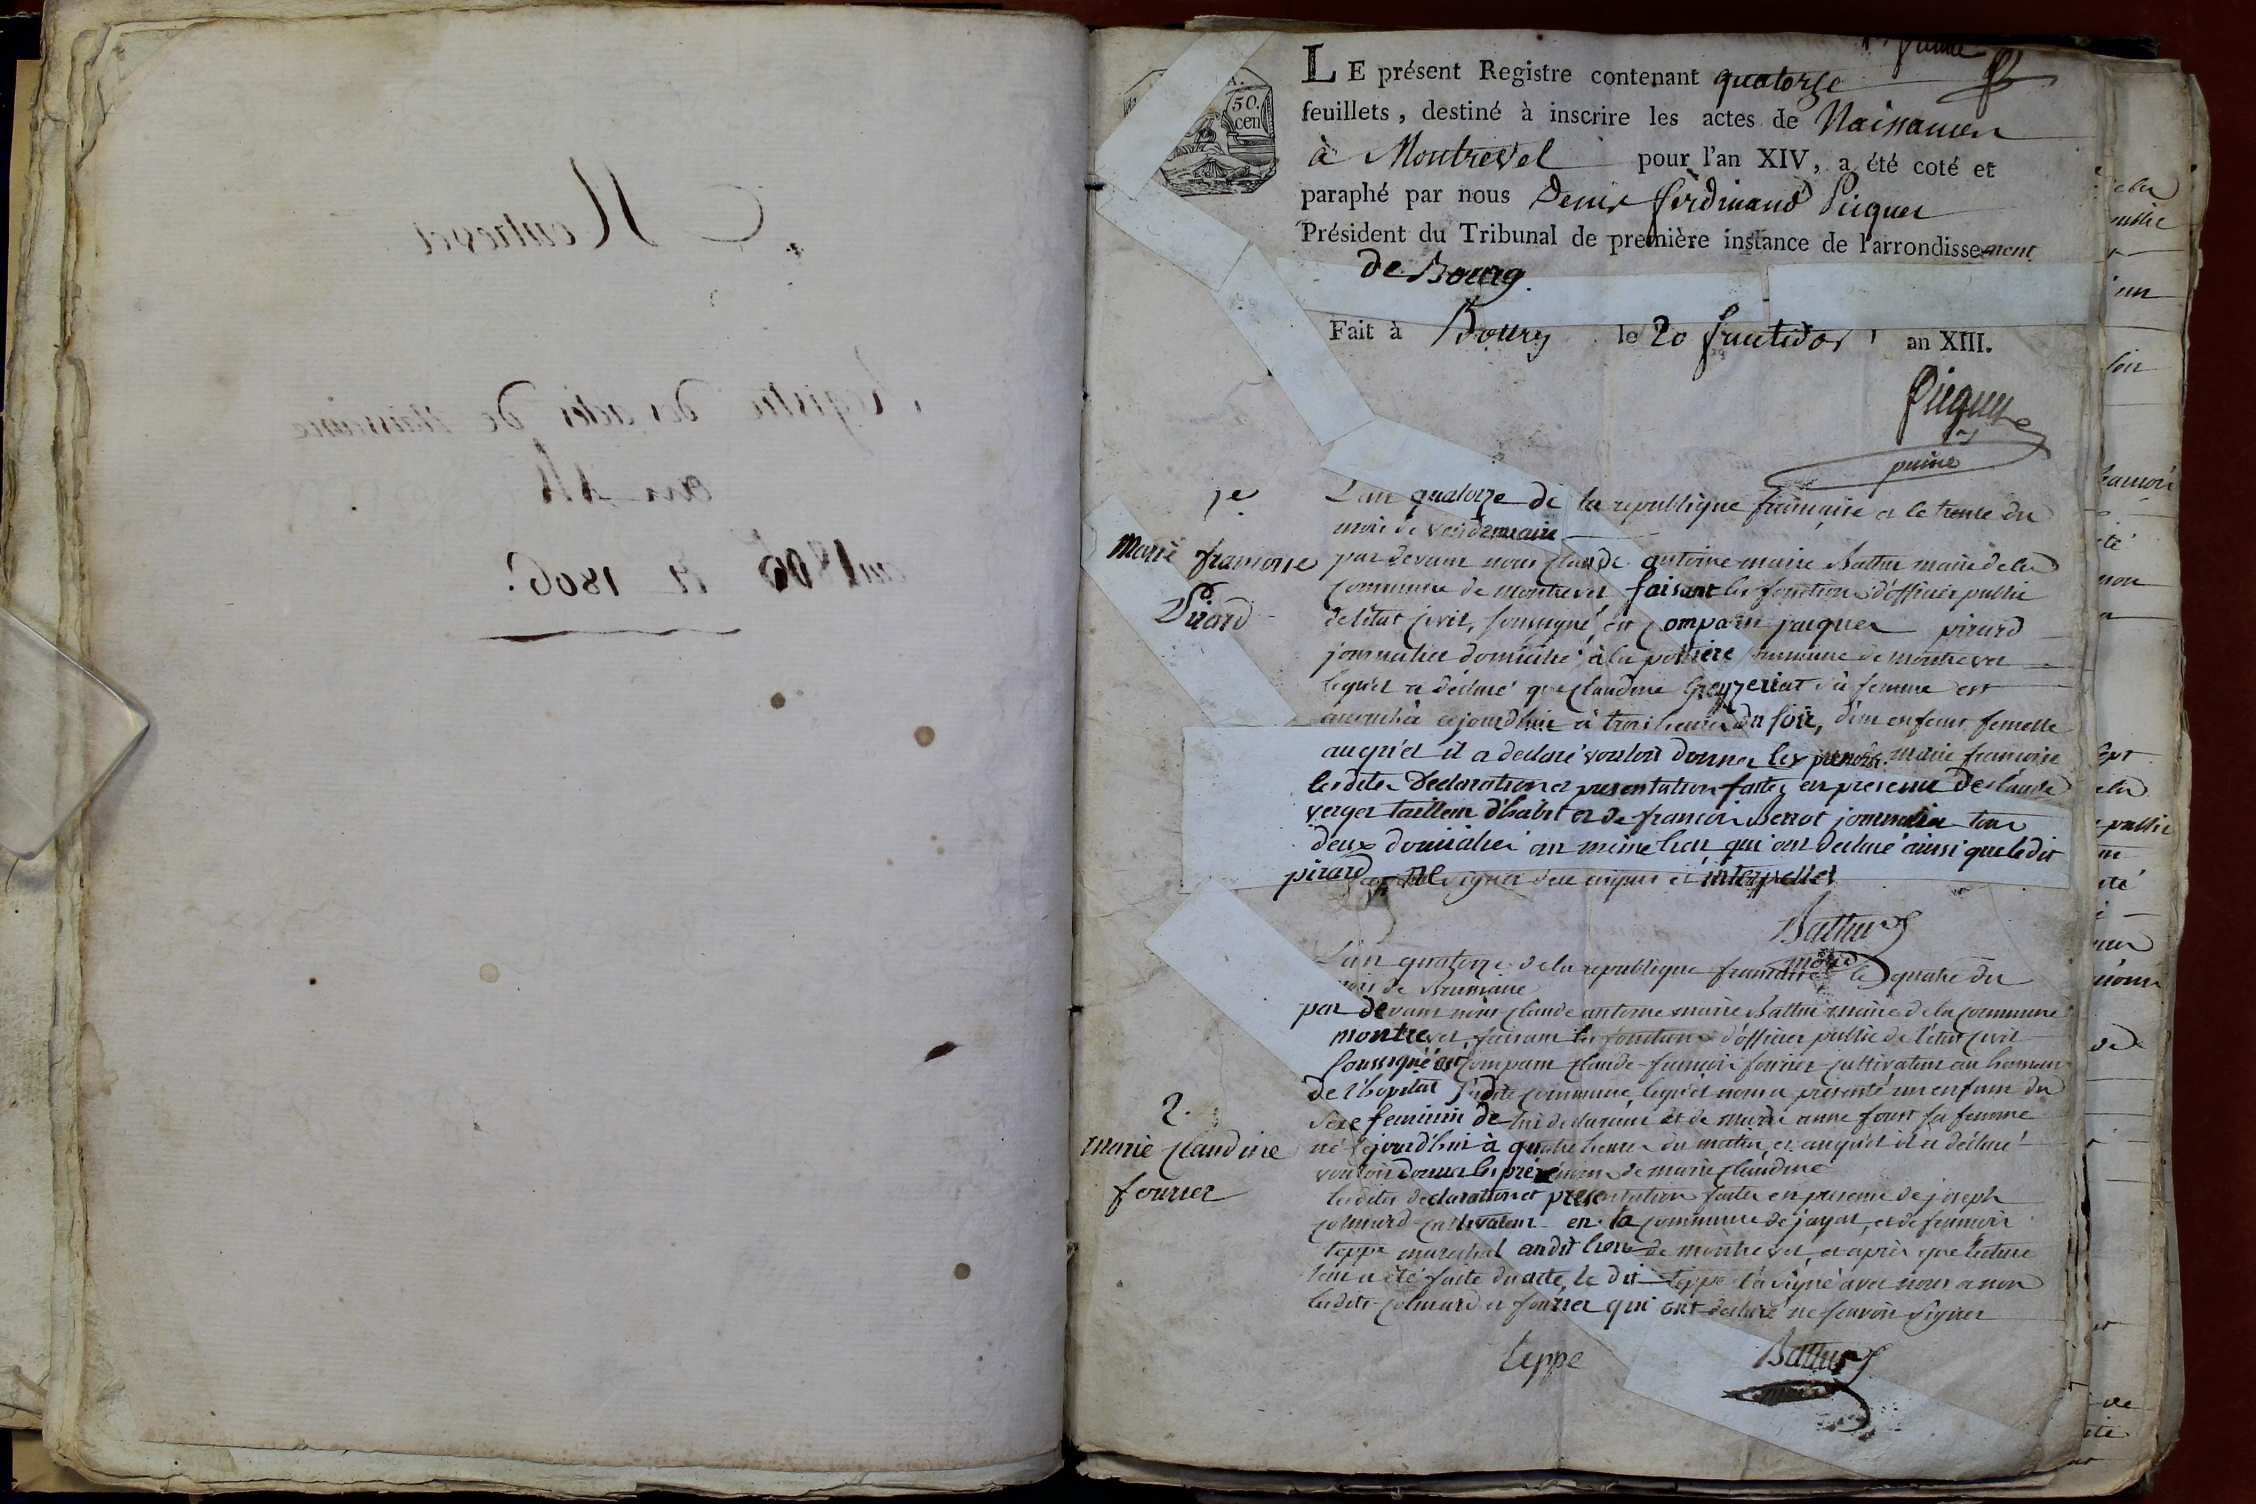 Montrevel
Registre des actes de Naissance
an 14
an 1805 et 1806.
50.
cen
LE présent Registre contenant quatorze
feuillets, destiné à inscrire les actes de Naissances
à Montrevel pour l'an XIV, a été coté et
paraphé par nous Denis ferdinand Picquet
Président du Tribunal de première instance de l'arrondissement
de Bourg.
Fait à Bourg le 20 fructidor an XIII.
Picquet
1e
Marie francoise
Pirard
L'an quatorze de la republique francaise et le trente du
mois de vendemiaire
par devant nous claude antoine marie Battur maire de la
commune de montrevel faisant les fonctions d'officier public
de létat civil, soussigné est comparu jacques pirard
journalier domicilié à la commune de montrevel
lequel a déclaré que claudine Greyzeriat sa femme est
accouchée cejourdhui à trois heures du soir, d'un enfant femelle
auquel il a declaré vouloir donner les prenoms marie francoise
lesdites Declaration et presentation faites en presence de claude
verger tailleur d'habit et de francois Berrot journalier tous
deux domiciliés au meme lieu qui ont declaré ainsi que ledit
pirard ne signer de ce enquis et interpellés
Battur
maire
L'an quatorze de la republique francaise le quatre du
mois de Brumaire
par devant nous claude antoine marie Battur maire de la commune
montrevel, faisant les fonctions d'officier public de l'état civil
soussigné est comparu claude francois fourier cultivateur au hameau
de l'hopital susdite commune, lequel nous a présenté un enfant du
sexe feminin de lui declarant et de marie anne fourt sa femme
né cejourd'hui à quatre heures du matin, et auquel il a déclaré
vouloir donner les prénoms de marie claudine
lesdites declaration et presentation faites en presence de joseph
colmard cultivateur en la commune de jayat, et de francois
teppe marechal audit lieu de montrevel, et après que lecture
leur a été faite du acte, le dit teppe l'a signé avec nous et non
lesdits colmard et fourier qui ont declaré ne scavoir signer
2.
marie claudine
fourier
teppe
Battur
maire